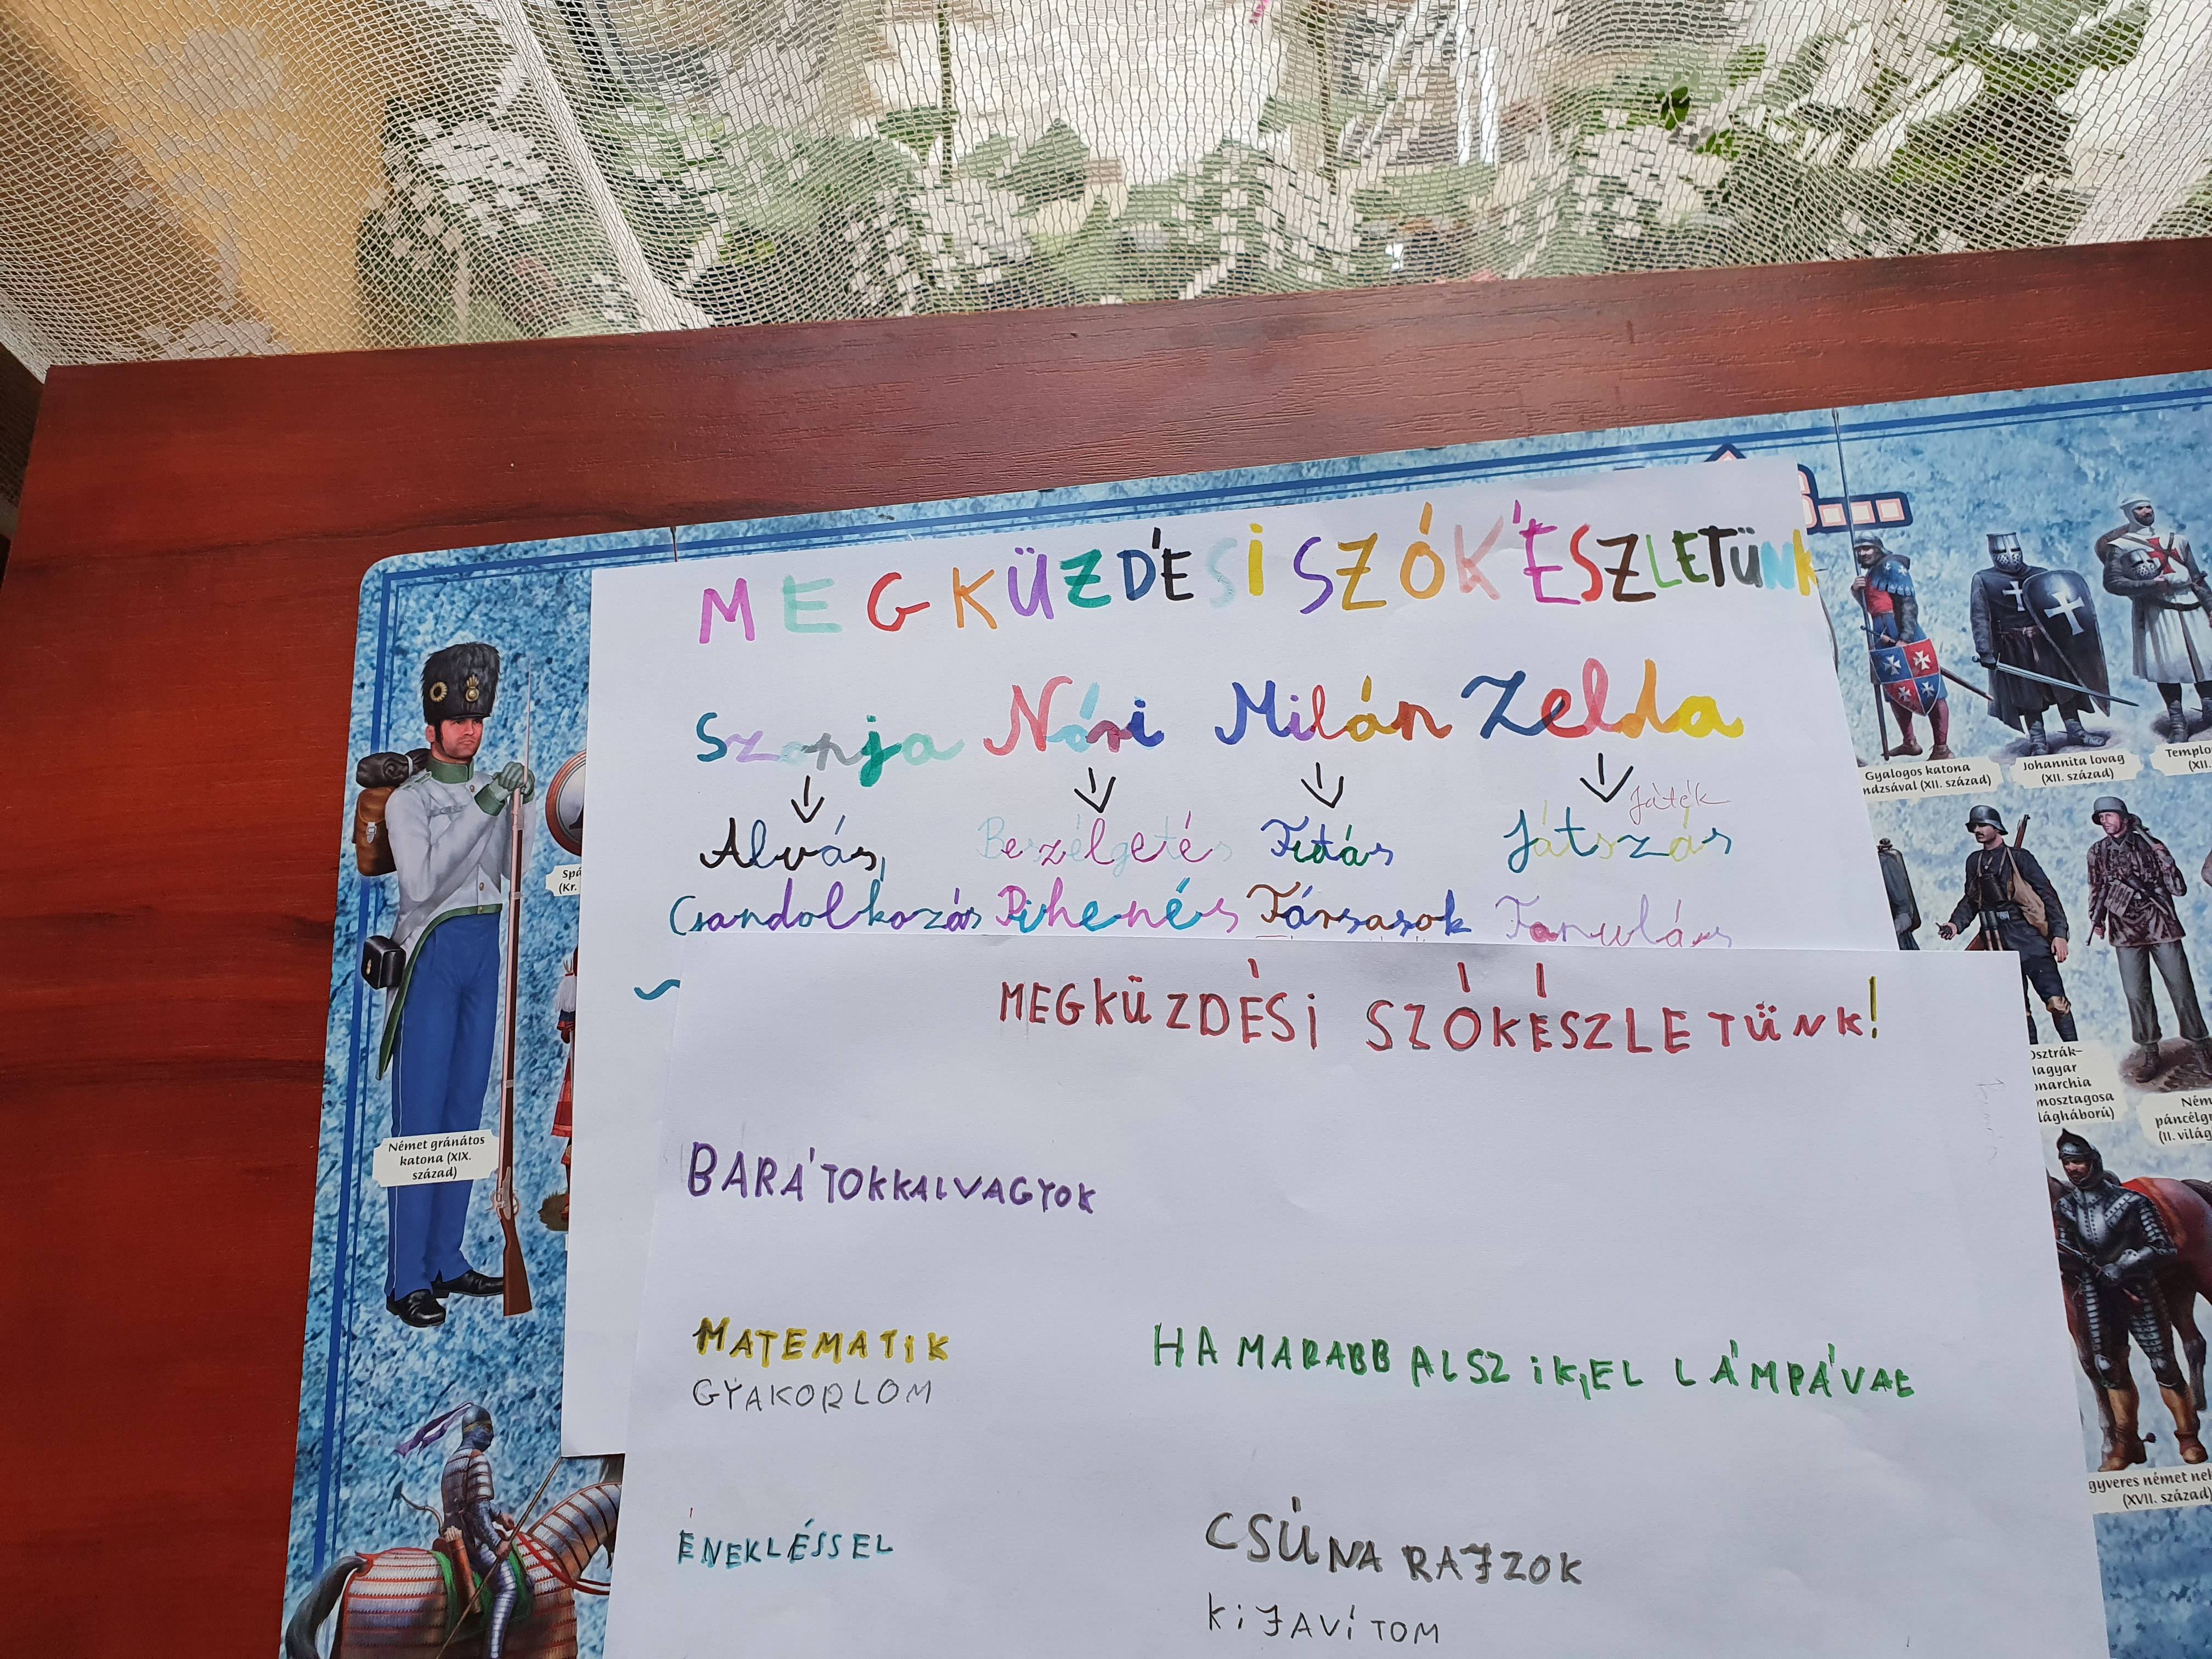 MEGKÜZDÉSI SZÓKÉSZLETÜNK
Szonja Nóri Milán Zelda
Játék
Alvás, Beszélgetés Futás Játszás
Gondolkozás Pihenés Társasok Tanulás
MEGKÜZDÉSI SZÓKÉSZLETÜNK!
BARÁTOKKALVAGYOK
MATEMATIK
GYAKORLOM
HAMARABB ALSZIK,EL LÁMPÁVAL
ÉNEKLÉSSEL
CSÚNA RAJZOK
KIJAVÍTOM
Német gránátos
katona (XIX.
század)
Spá
(Kr.
Gyalogos katona
ndzsával (XII. század)
Johannita lovag
(XII. század)
Templo
(XII.
Osztrák–
Magyar
onarchia
mosztagosa
lágháború)
Ném
páncélgr
(II. világ
gyveres német ne
(XVII. század)